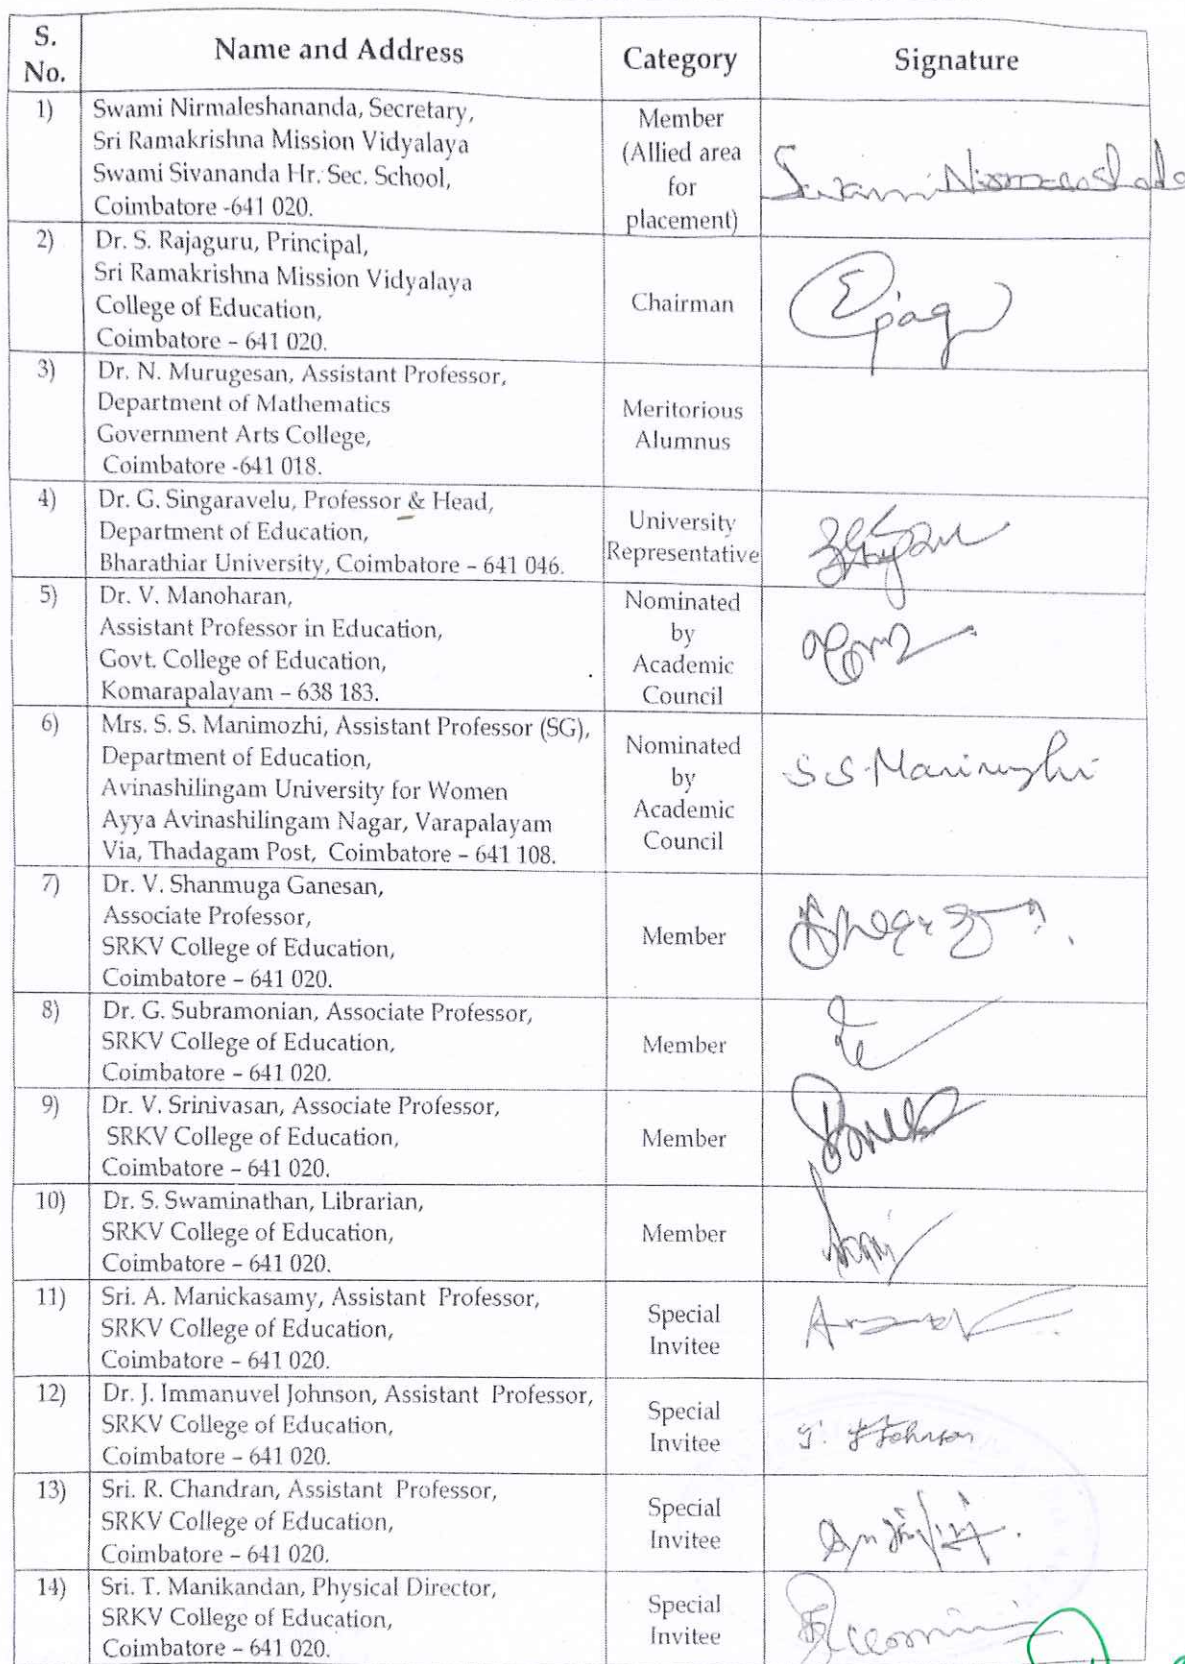 S.
No.
Name and Address
Category
Signature
1)
Swami Nirmaleshananda, Secretary,
Sri Ramakrishna Mission Vidyalaya
Swami Sivananda Hr. Sec. School,
Coimbatore -641 020.
Member
(Allied area
for
placement)
2)
Dr. S. Rajaguru, Principal,
Sri Ramakrishna Mission Vidyalaya
College of Education,
Coimbatore – 641 020.
Chairman
3)
Dr. N. Murugesan, Assistant Professor,
Department of Mathematics
Government Arts College,
Coimbatore -641 018.
Meritorious
Alumnus
4)
Dr. G. Singaravelu, Professor & Head,
Department of Education,
Bharathiar University, Coimbatore – 641 046.
University
Representative
5)
Dr. V. Manoharan,
Assistant Professor in Education,
Govt. College of Education,
Komarapalayam – 638 183.
Nominated
by
Academic
Council
6)
Mrs. S. S. Manimozhi, Assistant Professor (SG),
Department of Education,
Avinashilingam University for Women
Ayya Avinashilingam Nagar, Varapalayam
Via, Thadagam Post, Coimbatore – 641 108.
Nominated
by
Academic
Council
7)
Dr. V. Shanmuga Ganesan,
Associate Professor,
SRKV College of Education,
Coimbatore – 641 020.
Member
8)
Dr. G. Subramonian, Associate Professor,
SRKV College of Education,
Coimbatore – 641 020.
Member
9)
Dr. V. Srinivasan, Associate Professor,
SRKV College of Education,
Coimbatore – 641 020.
Member
10)
Dr. S. Swaminathan, Librarian,
SRKV College of Education,
Coimbatore – 641 020.
Member
11)
Sri. A. Manickasamy, Assistant Professor,
SRKV College of Education,
Coimbatore – 641 020.
Special
Invitee
12)
Dr. J. Immanuvel Johnson, Assistant Professor,
SRKV College of Education,
Coimbatore – 641 020.
Special
Invitee
13)
Sri. R. Chandran, Assistant Professor,
SRKV College of Education,
Coimbatore – 641 020.
Special
Invitee
14)
Sri. T. Manikandan, Physical Director,
SRKV College of Education,
Coimbatore – 641 020.
Special
Invitee